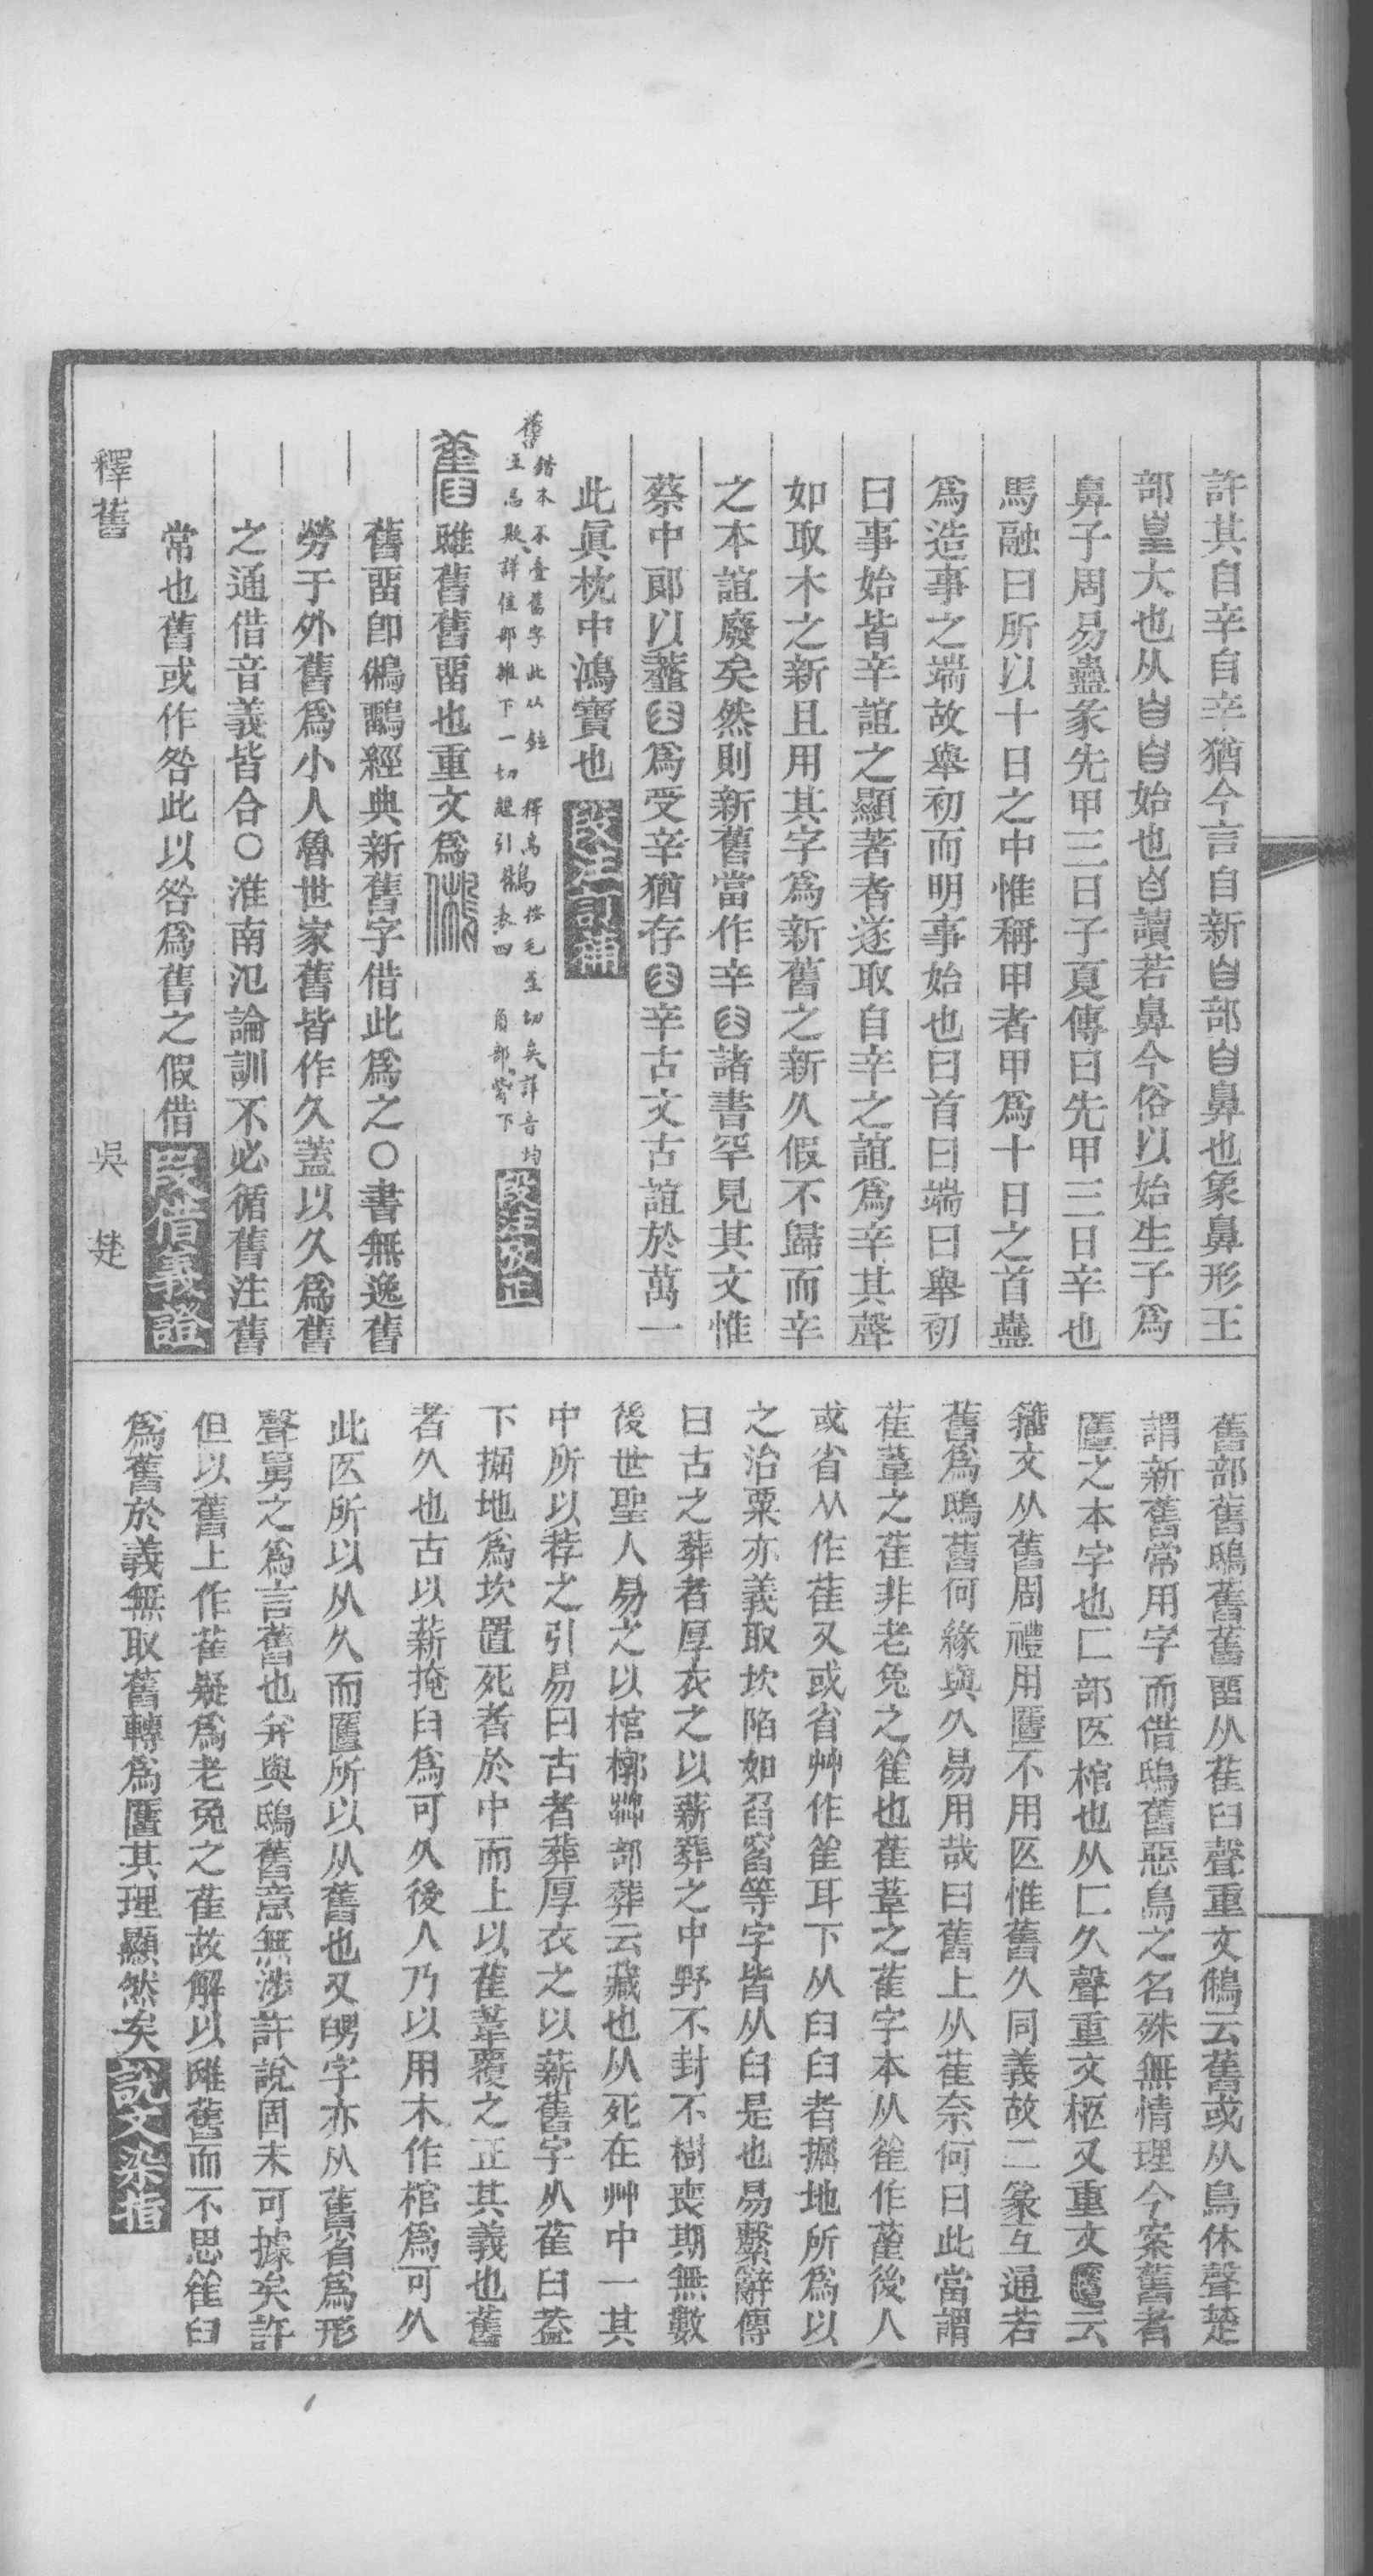 許其自辛自辛猶今言自新自部自鼻也象鼻形王
部皇大也从自自始也自讀若鼻今俗以始生子爲
鼻子周易蠱彖先甲三日子夏傳曰先甲三日辛也
馬融曰所以十日之中惟稱甲者甲爲十日之首蠱
爲造事之端故舉初而明事始也曰首曰端曰舉初
曰事始皆辛誼之顯著者遂取自辛之誼爲辛其聲
如取木之新且用其字爲新舊之新久假不歸而辛
之本誼廢矣然則新舊當作辛臼諸書罕見其文惟
蔡中郎以虀臼爲受辛猶存臼辛古文古誼於萬一
此眞枕中鴻寶也 段注訂補
段注攷正
舊 雖舊舊畱也重文爲
舊畱卽鵂鶹經典新舊字借此爲之○書無逸舊
勞于外舊爲小人魯世家舊皆作久蓋以久爲舊
之通借音義皆合○淮南氾論訓不必循舊注舊
常也舊或作咎此以咎爲舊之假借 叚借義證
釋舊
吳 楚
舊部舊鴟舊舊畱从萑臼聲重文鵂云舊或从鳥休聲楚
謂新舊常用字而借鴟舊惡鳥之名殊無情理今案舊者
匶之本字也匚部匛棺也从匚久聲重文柩又重文匶云
籒文从舊周禮用匶不用匛惟舊久同義故二篆互通若
舊爲鴟舊何緣與久易用哉曰舊上从萑奈何曰此當謂
萑葦之萑非老兔之萑也萑葦之萑字本从萑作雚後人
或省从作萑又或省艸作隹耳下从臼臼者掘地所爲以
之治粟亦義取坎陷如舀臽等字皆从臼是也易繫辭傳
曰古之葬者厚衣之以薪葬之中野不封不樹喪期無數
後世聖人易之以棺槨茻部葬云藏也从死在茻中一其
中所以荐之引易曰古者葬厚衣之以薪舊字从萑臼葢
下掘地爲坎置死者於中而上以萑葦覆之正其義也舊
者久也古以薪掩臼爲可久後人乃以用木作棺爲可久
此匛所以从久而匶所以从舊也又舅字亦从舊省爲形
聲舅之爲言舊也弁與鴟舊意無涉許說固未可據矣許
但以舊上作萑疑爲老兔之萑故解以雖舊而不思萑臼
爲舊於義無取舊轉爲匶其理顯然矣 說文染指